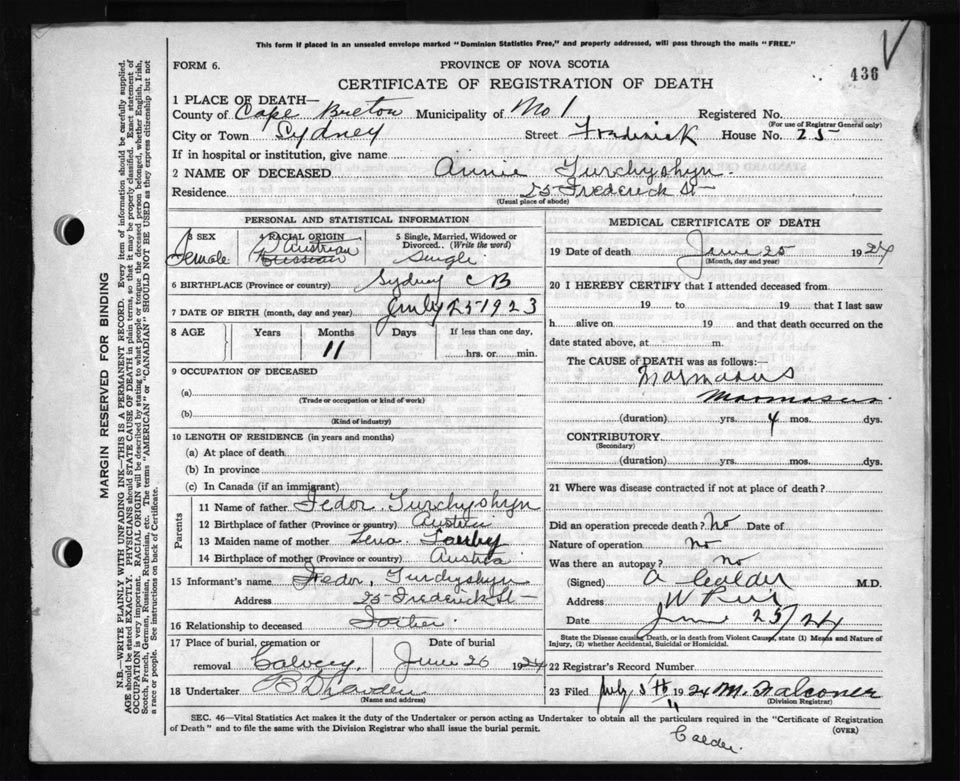 This form if placed in an unsealed envelope marked "Dominion Statistics Free," and properly addressed, will pass through the mails "FREE."
436
FORM 6.
PROVINCE OF NOVA SCOTIA
CERTIFICATE OF REGISTRATION OF DEATH
1 PLACE OF DEATH—
County of Cape Breton Municipality of No 1 Registered No.
(For use of Registrar General only)
City or Town Sydney Street Fradrick House No. 25
If in hospital or institution, give name
2 NAME OF DECEASED Annie Turchyshyn.
Residence 25 Frederick St
(Usual place of abode)
PERSONAL AND STATISTICAL INFORMATION
3 SEX 4 RACIAL ORIGIN 5 Single, Married, Widowed or Divorced.. (Write the word)
Female Austrian Russian Single
6 BIRTHPLACE (Province or country) Sydney CB
7 DATE OF BIRTH (month, day and year) July 25 1923
8 AGE Years Months Days If less than one day,
11 hrs. or min.
9 OCCUPATION OF DECEASED
(a)
(Trade or occupation or kind of work)
(b)
(Kind of industry)
10 LENGTH OF RESIDENCE (in years and months)
(a) At place of death
(b) In province
(c) In Canada (if an immigrant)
Parents
11 Name of father Fedor Turchyshyn
12 Birthplace of father (Province or country) Austria
13 Maiden name of mother Lena
14 Birthplace of mother (Province or country) Austria
15 Informant's name Fedor, Turchyshyn
Address 25 Frederick St
16 Relationship to deceased Father.
17 Place of burial, cremation or removal Date of burial
Calvery, June 26 1924
18 Undertaker
(Name and address)
MEDICAL CERTIFICATE OF DEATH
19 Date of death June 25 1924
(Month, day and year)
20 I HEREBY CERTIFY that I attended deceased from
19 to 19 that I last saw
h alive on 19 and that death occurred on the
date stated above, at m.
The CAUSE OF DEATH was as follows:—
Marmasus
Marmasus.
(duration) yrs. 4 mos. dys.
CONTRIBUTORY
(Secondary)
(duration) yrs. mos. dys.
21 Where was disease contracted if not at place of death?
Did an operation precede death? No Date of
Nature of operation no
Was there an autopsy? no
(Signed) A Calder M.D.
Address W Pier
Date June 25/24
State the Disease causing Death, or in death from Violent Causes, state (1) Means and Nature of Injury, (2) whether Accidental, Suicidal or Homicidal.
22 Registrar's Record Number
23 Filed July 5th 1924 M. Falconer
(Division Registrar)
SEC. 46—Vital Statistics Act makes it the duty of the Undertaker or person acting as Undertaker to obtain all the particulars required in the "Certificate of Registration
of Death" and to file the same with the Division Registrar who shall issue the burial permit.
(OVER)
Calder.
MARGIN RESERVED FOR BINDING
N.B.—WRITE PLAINLY WITH UNFADING INK—THIS IS A PERMANENT RECORD. Every item of information should be carefully supplied.
AGE should be stated EXACTLY. PHYSICIANS should STATE CAUSE OF DEATH in plain terms, so that it may be properly classified. Exact statement of
OCCUPATION is very important. RACIAL ORIGIN will be described by stating to what people or tongue the deceased person belonged, whether English, Irish,
Scotch, French, German, Russian, Ruthenian, etc. The terms "AMERICAN" or "CANADIAN" SHOULD NOT BE USED as they express citizenship but not
a race or people. See instructions on back of Certificate.